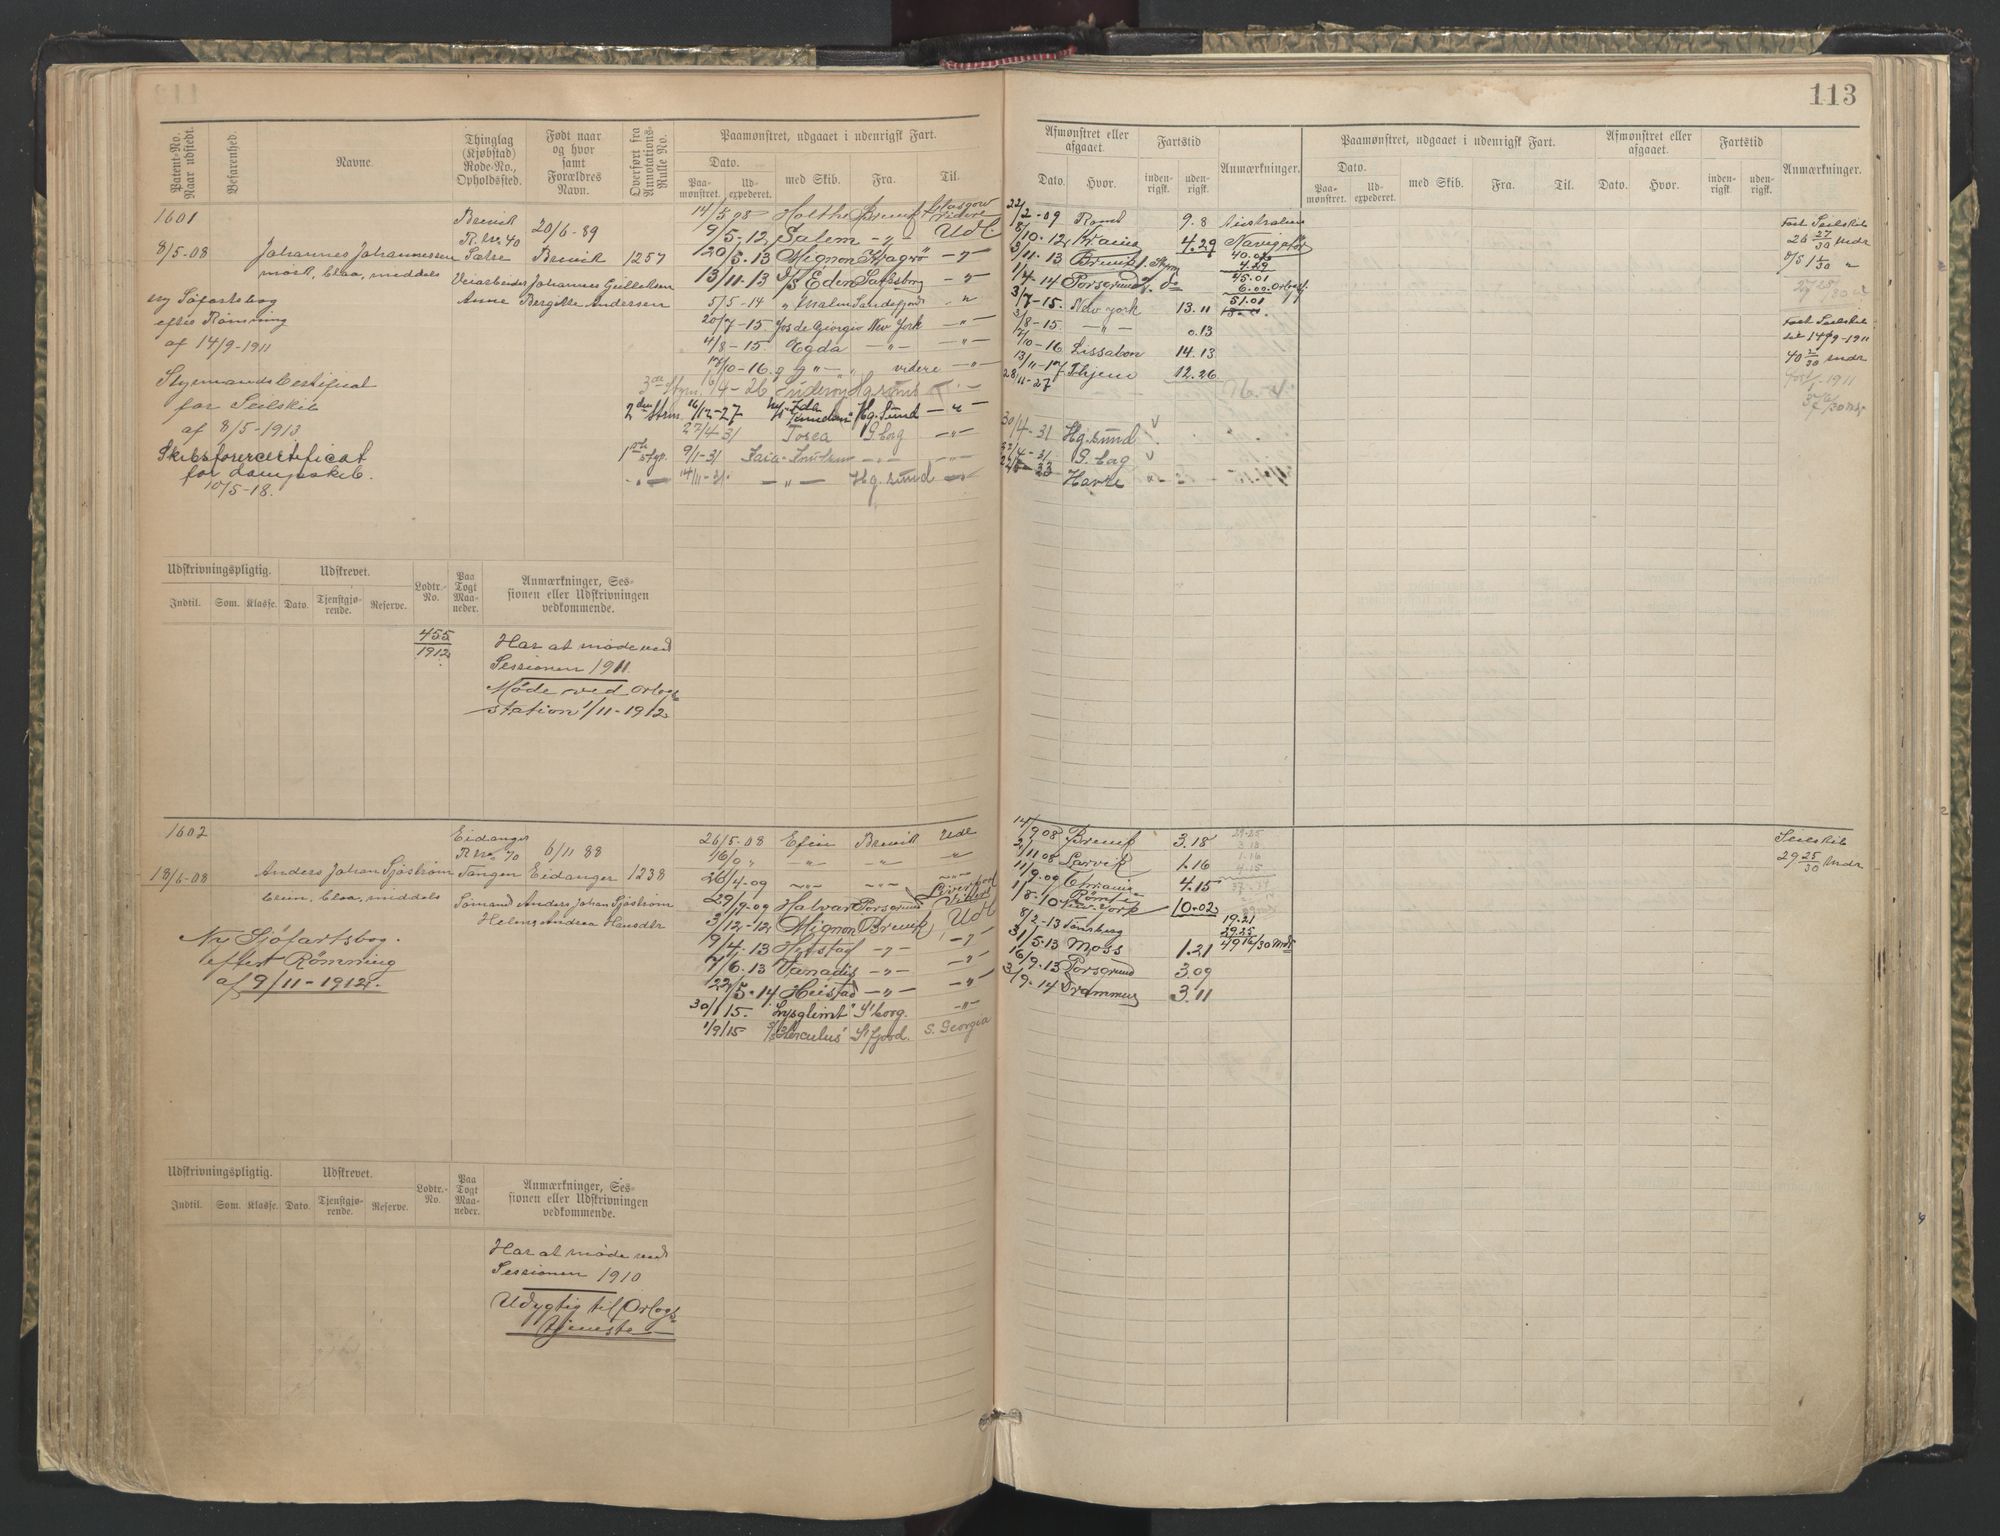 113
Patent-No.
Naar udstedt.
Befarenhed.
Navne.
Thinglag
(Kjøbstad)
Rode-No.,
Opholdssted.
Født naar
og hvor
samt
Forældres
Navn.
Overført fra
Annotations-
Rulle No.
Paamønstret, udgaaet i udenrigsk Fart.
Dato.
Paa-
mønstret.
Ud-
expederet.
med Skib.
Fra.
Til.
Afmønstret eller
afgaaet.
Dato.
Hvor.
Fartstid
inden-
rigsk.
uden-
rigsk.
Anmærkninger.
Paamønstret, udgaaet i udenrigsk Fart.
Dato.
Paa-
mønstret.
Ud-
expederet.
med Skib.
Fra.
Til.
Afmønstret eller
afgaaet.
Dato.
Hvor.
Fartstid
inden-
rigsk.
uden-
rigsk.
Anmærkninger.
1601
8/5-08
Johannes Johannessen
mørk, blaa, middels
Brevik
R. No. 40
Sætre
20/6-89
Brevik
1257
Veiarbeider Johannes Gullelsen
Anne Bergitte Andersen
ny Søfartsbog
efter Rømning
af 14/9-1911
Styrmandscertificat
for Seilskib
af 8/5-1913
Skibsførercertificat
for dampskib.
10/5-18.
14/5 08 Holthe Brevik Glasgow videre
9/5-12 Salem -"- Udl.
20/5-13 Mignon Kragrø -"-
13/11-13 S/S Eden Sarpsborg -"-
5/5-14 " Malm Sandefjord -"-
20/7-15 Jos de Giorgio New York -"-
4/8-15 Egda -"- -"-
17/10-16 -"- videre -"-
3de Styrm. 16/4-26 Hg.sund -"-
2den Strm. 16/12-27 Hg. Sund -"-
27/4 31 Tosca G.borg -"-
1ste Styr. 9/1-31 Kaia Knudsen -"- -"-
-"- 14/11-31 -"- Hg.sund -"-
22/2-09 9.8 Australien
8/10-12 4.29 Navigatør
3/11-13 Brevik f. Styrm
1/4-14 Porsgrund f. do
3/7-15. New York 13.11
3/8-15 -"- 0.13
7/10-16 Lissabon 14.13
13/11-17 Hjem 12.26
28/11-27
30/4-31 Hg.sund
G. borg
Havre
40.02
4.29
45.01
6.00 Orlog
51.01
Fart Seilskib
26 27/30 Mdr
Fart Seilskib
sit 14/9-1911
40 2/30 Mdr
Udskrivningspligtig.
Indtil.
Som.
Klasse.
Udskrevet.
Dato.
Tjenstgjø-
rende.
Reserve.
Lodtr.-
No.
Paa
Togt
Maa-
neder.
Anmærkninger, Ses-
sionen eller Udskrivningen
vedkommende.
455
1912
Har at møde ved
Sessionen 1911
Møde ved Orlogs
station 1/11-1912
1602
18/6-08
Anders Johan Sjøstrøm
Eidanger
R. No. 70
Tangen
6/11 88
Eidanger
1238
blaa, middels
Sømand Anders Johan Sjøstrøm
Helene Andrea Hansdtr
Ny Sjøfartsbog.
efter Rømning
af 9/11-1912.
26/5-08 Efeu Brevik Udl
16/6 " -"- -"- -"-
26/4-09 -"- -"- -"-
29/9-09 Halvar Porsgrund Liverpool Videre
3/12-12 Mignon Brevik Udl
19/4-13 Heistad -"- -"-
7/6-13 Vanadis -"- -"-
22/5-14 Heistad -"- -"-
30/1 15. Lysglimt" S'borg. -"-
1/9/15 S/S Herculus" S'fjord. S. Georgia
14/9 08 Brevik 3.18
2/11 08 Larvik 1.16
11/9.09 Chriania 4.15
1/8-10 Rømt New York 10.02
8/2-13 Tønsberg
31/5-13 Moss 1.21
16/9-13 Porsgrund 3.09
3/9-14 Drammen 3.11
29.25
3.18
1.16
4.15
19.21
29.25
49 16/30 Mdr
Seilskib
29 25/30 Mdr
Udskrivningspligtig.
Indtil.
Som.
Klasse.
Udskrevet.
Dato.
Tjenstgjø-
rende.
Reserve.
Lodtr.-
No.
Paa
Togt
Maa-
neder.
Anmærkninger, Ses-
sionen eller Udskrivningen
vedkommende.
Har at møde ved
Sessionen 1910
Udygtig til Orlogs
tjeneste